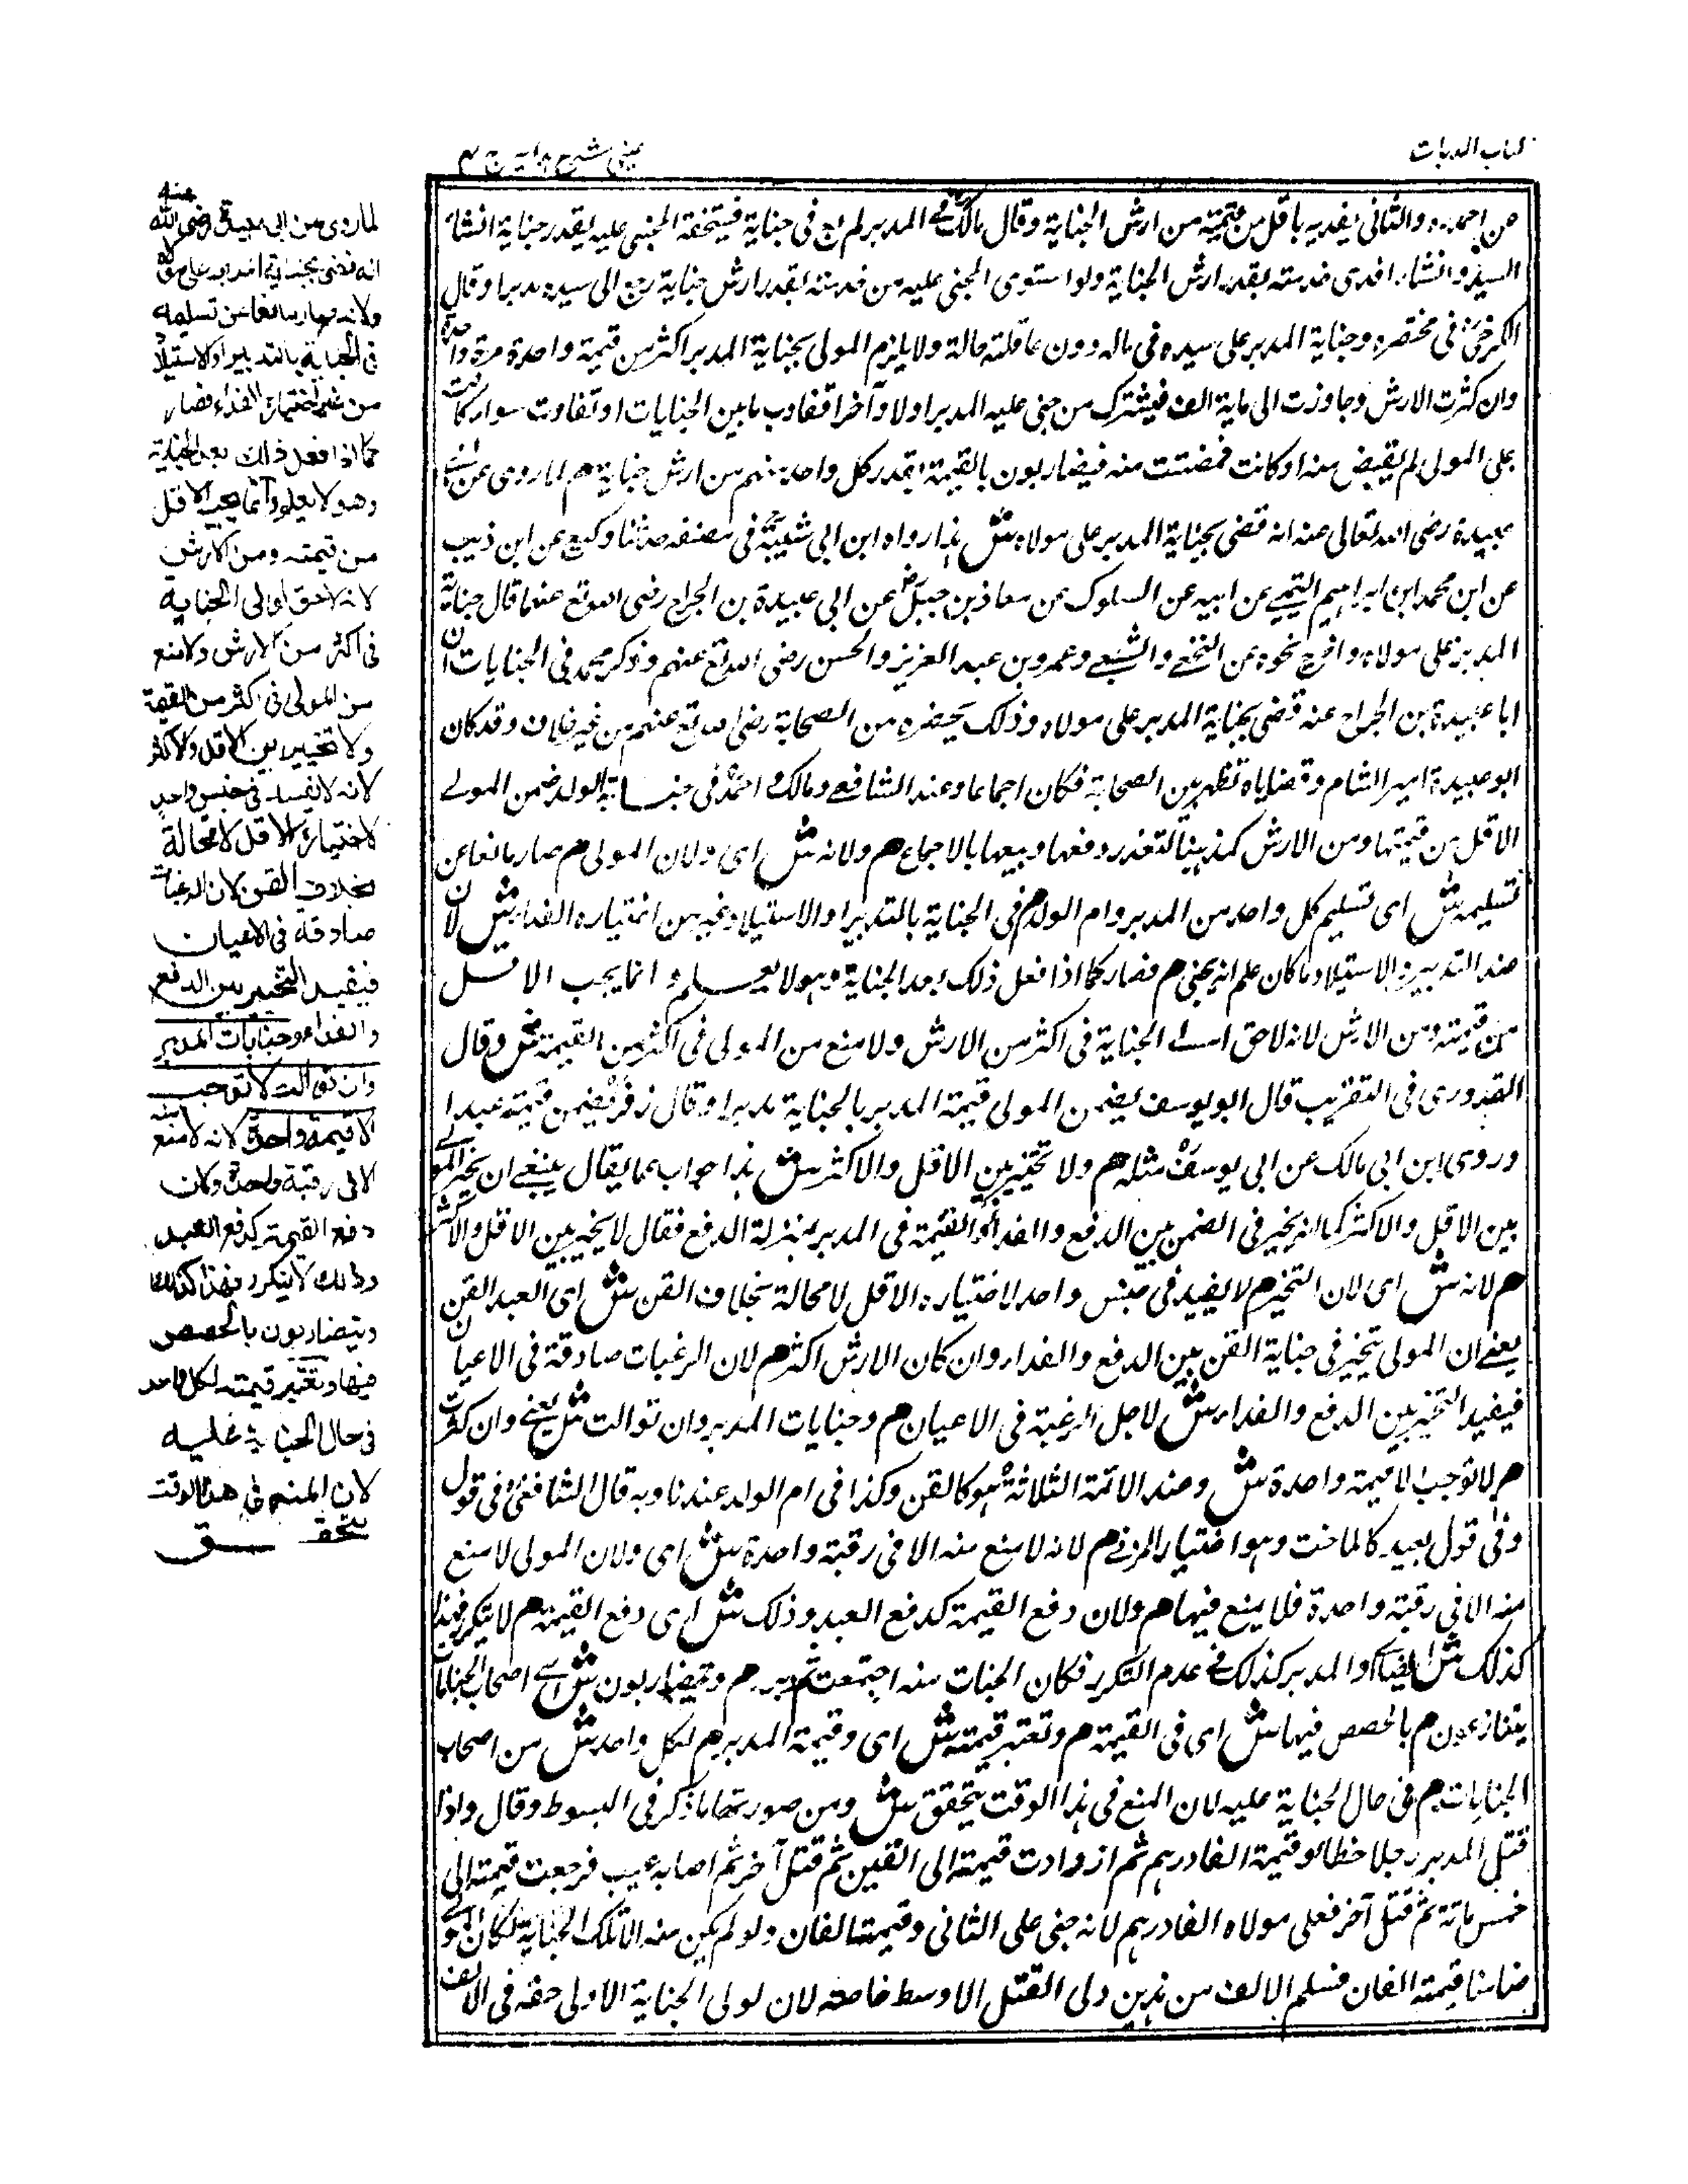 كتاب الديات
عينى شرح هداية ج ٤
عن احمد والثانى يفديه باقل من قيمته من ارش الجناية وقال مالك فى المدبر لم يع فى جناية فيستخدمه المجنى عليه بقدر جناية ان شاء
السيد وان شاء افدى خدمته بقدر ارش الجناية ولو استوى المجنى عليه من خدمته بقدر ارش جناية رجع الى سيده مدبرا وقال
الكرخى فى مختصره وجناية المدبر على سيده فى ماله دون عاقلته حالة ولا يلزم المولى بجناية المدبر اكثر من قيمة واحدة مرة واحدة
وان كثرت الارش وجاوزت الى مائة الف فيشترك من جنى عليه المدبر اولا وآخرا تقارب ما بين الجنايات او تفاوت سواء كانت
على المولى لم يقبض منه او كانت قبضت منه فيضاربون بالقيمة بقدر كل واحد منهم من ارش جناية هم لما روى عن ابى
عبيدة رضى الله تعالى عنه انه قضى بجناية المدبر على مولاه ش هذا رواه ابن ابى شيبة فى مصنفه حدثنا وكيع عن ابن ذيب
عن ابن محمد ابن ابراهيم التيمى عن ابيه عن السلوك عن معاذ بن جبل عن ابى عبيدة بن الجراح رضى الله تع عنهما قال جناية
المدبر على مولاه واخرج نحوه عن النخعى والشعبى وعمرو بن عبد العزيز والحسن رضى الله تع عنهم وذكر محمد فى الجنايات ان
ابا عبيدة بن الجراح عنه قضى بجناية المدبر على مولاه وذلك بحضره من الصحابة رضى الله تع عنهم من غير خلاف وقد كان
ابو عبيدة امير الشام وقضاياه تظهر بين الصحابة فكان اجماعا وعند الشافعى ومالك احمد فى جناية ام الولد ضمن المولى
الاقل من قيمتها ومن الارش كمذهبنا لتعذر دفعها وبيعها بالاجماع هم ولانه ش اى ولان المولى م صار مانعا عن
تسليمه ش اى تسليم كل واحد من المدبر وام الولد م فى الجناية بالتدبير او الاستيلاد من غير اختياره الفداء ش لان
عند التدبير والاستيلاد ما كان علم انه يجنى هم فصار كما اذا فعل ذلك بعد الجناية وهو لا يعلم وانما يجب الاقل
من قيمته ومن الارش لانه لا حق لولى الجناية فى اكثر من الارش ولا منع من المولى فى اكثر من القيمة ش وقال
القدورى فى التقريب قال ابو يوسف يضمن المولى قيمة المدبر بالجناية مدبرا وقال زفر يضمن قيمته عبدا
وروى ابن ابى مالك عن ابى يوسف مثله هم ولا تخيير بين الاقل والاكثر ش هذا جواب عما يقال ينبغى ان يخير المولى
بين الاقل والاكثر كما انه يخير فى الضمن بين الدفع والفداء والقيمة فى المدبر بمنزلة الدفع فقال لا يخير بين الاقل والاكثر
هم لانه ش اى لان التخيير م لا يفيد فى جنس واحد لاختياره الاقل لا محالة بخلاف القن ش اى العبد القن
يعنى ان المولى يتخير فى جناية القن بين الدفع والفداء وان كان الارش اكثر هم لان الرغبات صادقة فى الاعيان
فيفيد التخيير بين الدفع والفداء ش لاجل الرغبة فى الاعيان م وجنايات المدبر وان توالت ش يعنى وان كثرت
هم لا توجب الا قيمة واحدة ش وعند الائمة الثلاثة هو كالقن وكذا فى ام الولد عندنا وبه قال الشافعى فى قول
وفى قول يعيد كلما جنت وهو اختيار المزنى م لانه لا منع منه الا فى رقبة واحدة ش اى ولان المولى لا منع
منه الا فى رقبة واحدة فلا يمنع فيها هم ولان دفع القيمة كدفع العبد وذلك ش اى دفع القيمة هم لا يتكرر فهذا
كذلك ش ايضا والمدبر كذلك فى عدم التكرر فكان الجنات منه اجتمعت ثم دبره هم ويتضاربون ش اى اصحاب الجنايات
يتنازعون م بالحصص فيها ش اى فى القيمة هم وتعتبر قيمته ش اى وقيمة المدبر هم لكل واحد ش من اصحاب
الجنايات هم فى حال الجناية عليه لان المنع فى هذا الوقت يتحقق ش ومن صورتها ما ذكر فى المبسوط وقال واذا
قتل المدبر رجلا خطأ وقيمة الف درهم ثم ازدادت قيمته الى الفين ثم قتل آخر ثم اصابه عيب فرجعت قيمته الى
خمس مائة ثم قتل آخر فعلى مولاه الفا درهم لانه جنى على الثانى وقيمته الفان ولو لم يكن منه الا تلك الجناية لكان المولى
ضامنا قيمته الفان فسلم الالف من هذين ولى القتيل الاوسط خاصة لان لولى الجناية الاولى حقه فى الالف
لما روى عن ابى عبيدة رضى الله عنه
انه قضى بجناية المدبر على مولاه
ولانه صار مانعا عن تسليمه
فى الجناية بالتدبير او الاستيلاد
من غير اختياره الفداء فصار
كما اذا فعل ذلك بعد الجناية
وهو لا يعلم وانما يجب الاقل
من قيمته ومن الارش
لانه لا حق لولى الجناية
فى اكثر من الارش ولا منع
من المولى فى اكثر من القيمة
ولا تخيير بين الاقل والاكثر
لانه لا يفيد فى جنس واحد
لاختياره الاقل لا محالة
بخلاف القن لان الرغبات
صادقة فى الاعيان
فيفيد التخيير بين الدفع
والفداء وجنايات المدبر
وان توالت لا توجب
الا قيمة واحدة لانه لا منع منه
الا فى رقبة واحدة ولان
دفع القيمة كدفع العبد
وذلك لا يتكرر فهذا كذلك
ويتضاربون بالحصص
فيها وتعتبر قيمته لكل واحد
فى حال الجناية عليه
لان المنع فى هذا الوقت
يتحقق